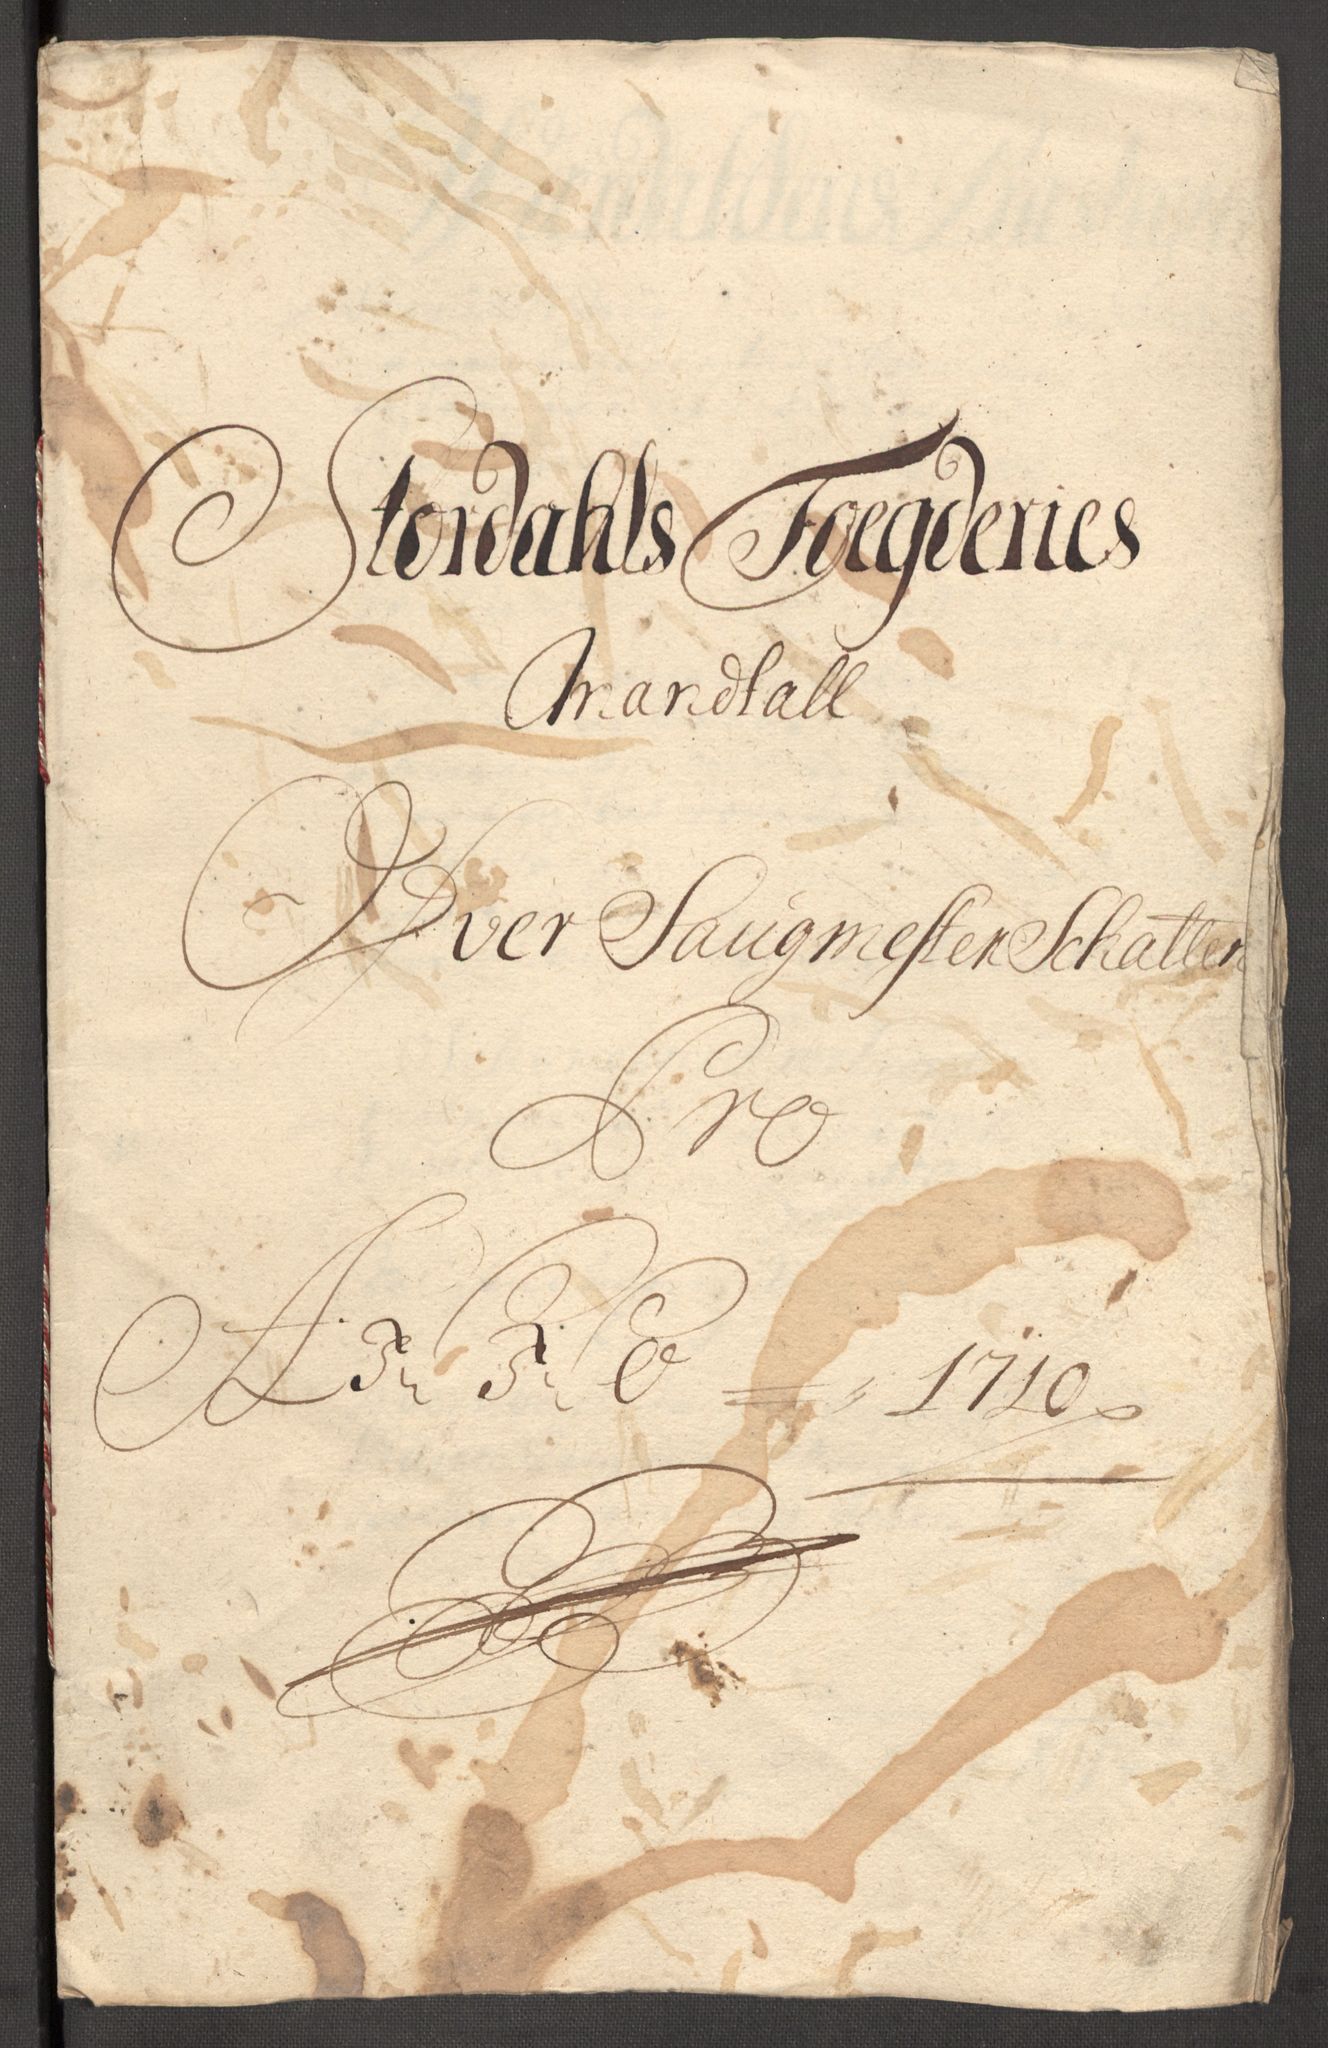 Stordahls Foegderies
Mandtall
Over Saugmester Schatten
Pro
ANNO 1710